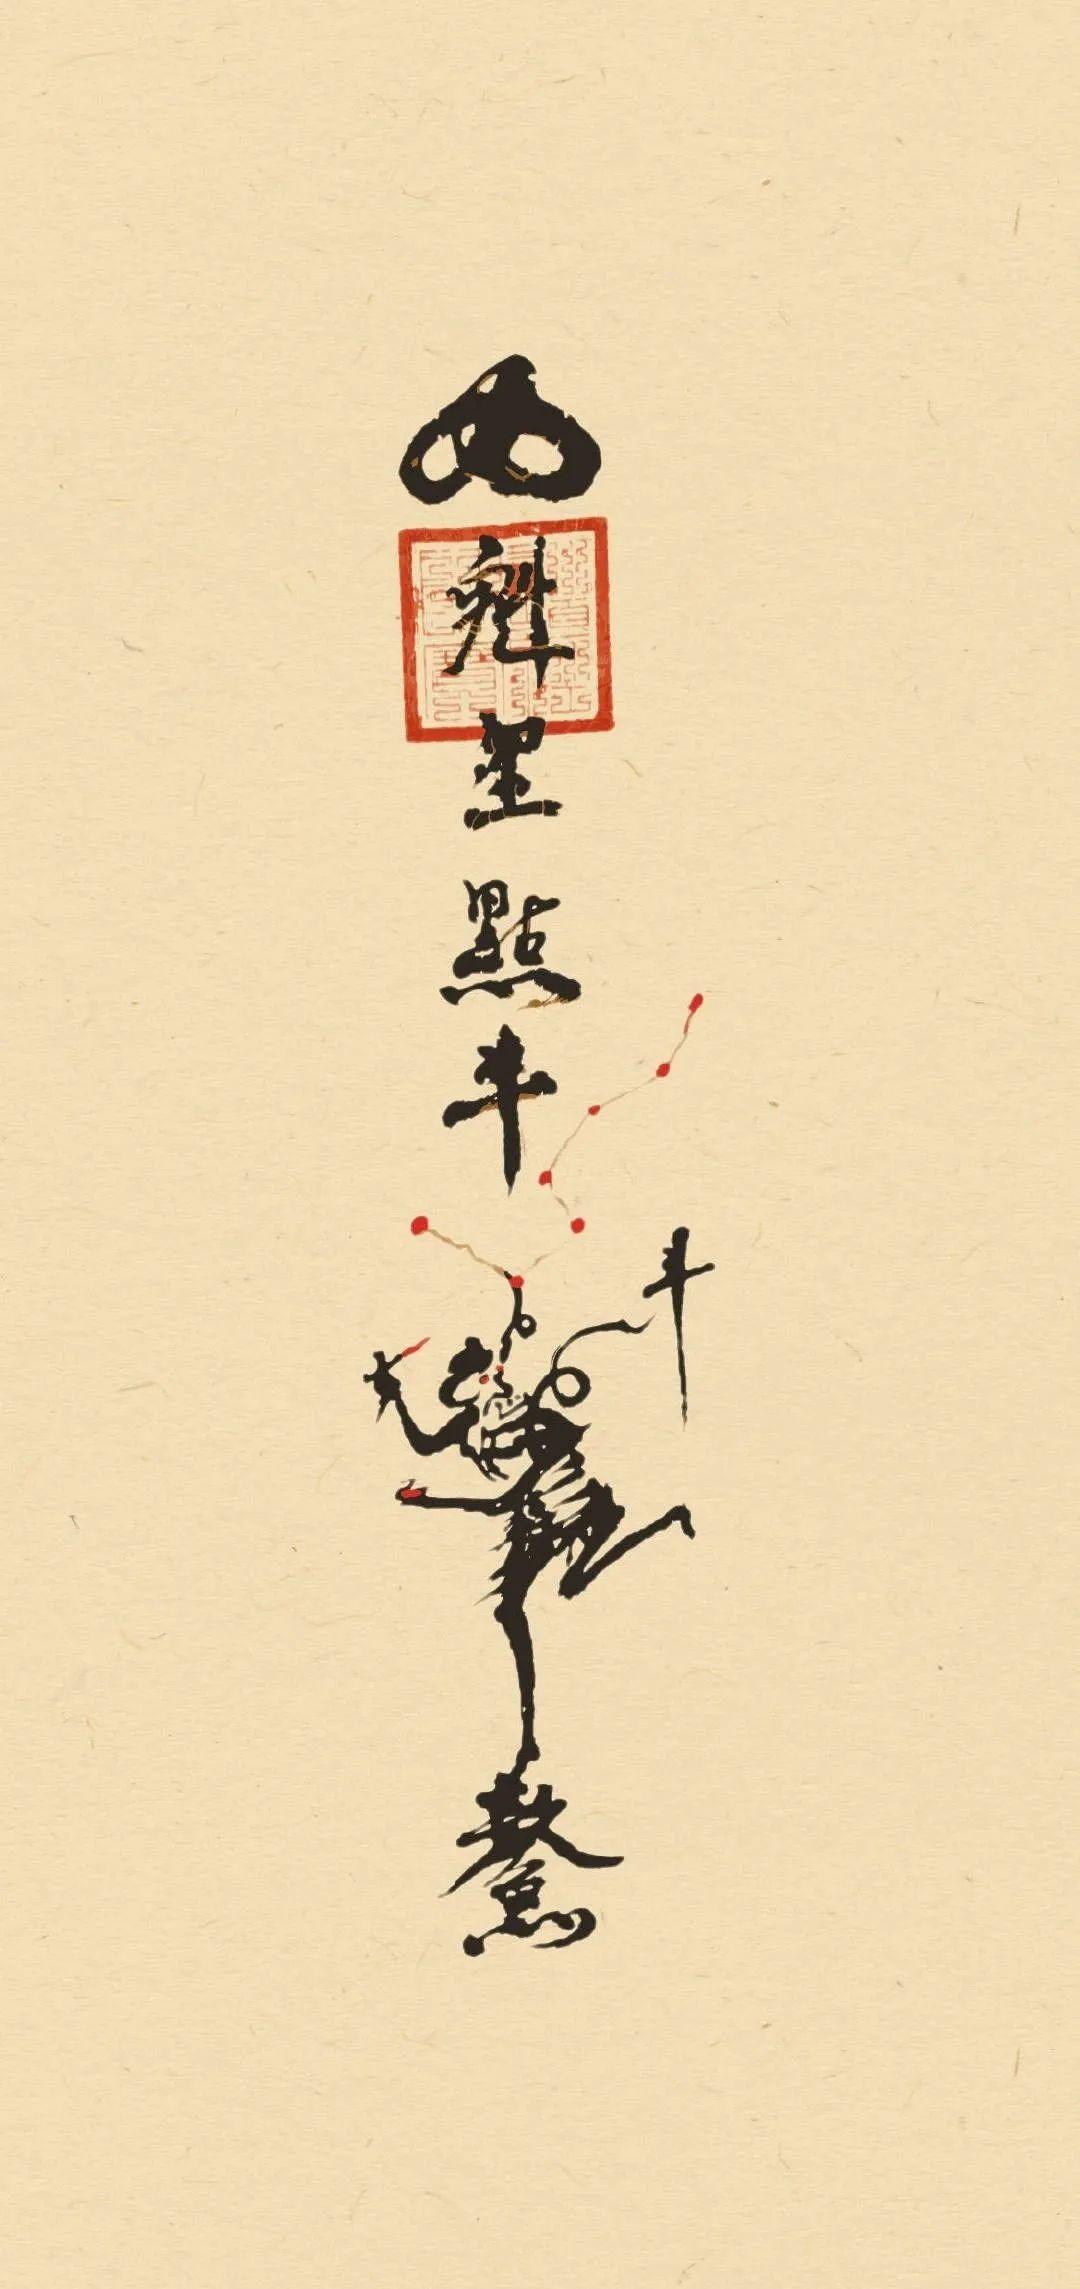 魁星點斗
斗
鰲